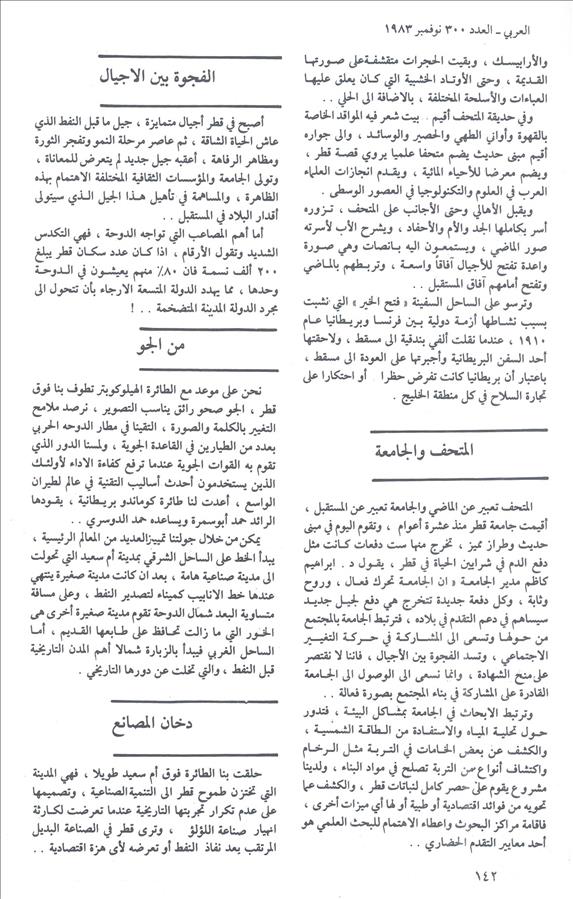 العربي ـ العدد ٣٠٠ نوفمبر ١٩٨٣
والأرابيسك ، وبقيت الحجرات متقشفة على صورتها
القديمة ، وحتى الأوتاد الخشبية التي كان يعلق عليها
العباءات والأسلحة المختلفة ، بالاضافة الى الحلي . .
وفي حديقة المتحف أقيم بيت شعر فيه المواقد الخاصة
بالقهوة وأواني الطهي والحصير والوسائد ، والى جواره
أقيم مبنى حديث يضم متحفا علميا يروي قصة قطر ،
ويضم معرضا للأحياء المائية ، ويقدم انجازات العلماء
العرب في العلوم والتكنولوجيا في العصور الوسطى .
ويقبل الأهالي وحتى الأجانب على المتحف ، تزوره
أسر بكاملها الجد والأم والأحفاد ، ويشرح الأب لأسرته
صور الماضي ، ويستمعون اليه بانصات وهي صورة
واعدة تفتح للأجيال آفاقاً واسعة ، وتربطهم بالماضي
وتفتح أمامهم آفاق المستقبل . .
وترسو على الساحل السفينة « فتح الخير » التي نشبت
بسبب نشاطها أزمة دولية بين فرنسا وبريطانيا عام
١٩١٠ ، عندما نقلت ألفي بندقية الى مسقط ، ولاحقتها
أحد السفن البريطانية وأجبرتها على العودة الى مسقط ،
باعتبار أن بريطانيا كانت تفرض حظرا أو احتكارا على
تجارة السلاح في كل منطقة الخليج .
المتحف والجامعة
المتحف تعبير عن الماضي والجامعة تعبير عن المستقبل ،
أقيمت جامعة قطر منذ عشرة أعوام ، وتقوم اليوم في مبنى
حديث وطراز مميز ، تخرج منها ست دفعات كانت مثل
دفع الدم في شرايين الحياة في قطر ، يقول د . ابراهيم
كاظم مدير الجامعة « ان الجامعة تحرك فعال ، وروح
وثابة ، وكل دفعة جديدة تتخرج هي دفع لجيل جديد
سيساهم في دعم التقدم في بلاده ، فترتبط الجامعة بالمجتمع
من حولها وتسعى الى المشاركة في حركة التغيير
الاجتماعي ، وتسد الفجوة بين الأجيال ، فاننا لا نقتصر
على منح الشهادة ، وانما نسعى الى الوصول الى الجامعة
القادرة على المشاركة في بناء المجتمع بصورة فعالة . .
وترتبط الابحاث في الجامعة بمشاكل البيئة ، فتدور
حول تحلية المياه والاستفادة من الطاقة الشمسية ،
والكشف عن بعض الخامات في التربة مثل الرخام
واكتشاف أنواع من التربة تصلح في مواد البناء ، ولدينا
مشروع يقوم على حصر كامل لنباتات قطر ، والكشف عما
تحويه من فوائد اقتصادية أو طبية أو لها أي ميزات أخرى ،
فاقامة مراكز البحوث واعطاء الاهتمام للبحث العلمي هو
أحد معايير التقدم الحضاري . .
الفجوة بين الاجيال
أصبح في قطر أجيال متمايزة ، جيل ما قبل النفط الذي
عاش الحياة الشاقة ، ثم عاصر مرحلة النمو وتفجر الثورة
ومظاهر الرفاهة ، أعقبه جيل جديد لم يتعرض للمعاناة ،
وتولى الجامعة والمؤسسات الثقافية المختلفة الاهتمام بهذه
الظاهرة ، والمساهمة في تأهيل هذا الجيل الذي سيتولى
أقدار البلاد في المستقبل . .
أما أهم المصاعب التي تواجه الدوحة ، فهي التكدس
الشديد وتقول الأرقام ، اذا كان عدد سكان قطر يبلغ
٢٠٠ ألف نسمة فان ٨٠٪ منهم يعيشون في الدوحة
وحدها ، مما يهدد الدولة المتسعة الارجاء بأن تتحول الى
مجرد الدولة المدينة المتضخمة . . !
من الجو
نحن على موعد مع الطائرة الهيلوكوبتر تطوف بنا فوق
قطر ، الجو صحو رائق يناسب التصوير ، نرصد ملامح
التغيير بالكلمة والصورة ، التقينا في مطار الدوحه الحربي
بعدد من الطيارين في القاعدة الجوية ، ولمسنا الدور الذي
تقوم به القوات الجوية عندما ترفع كفاءة الاداء لأولئك
الذين يستخدمون أحدث أساليب التقنية في عالم لطيران
الواسع ، أعدت لنا طائرة كوماندو بريطانية ، يقودها
الرائد حمد أبوسمرة ويساعده حمد الدوسري . .
يمكن من خلال جولتنا تمييز العديد من المعالم الرئيسية ،
يبدأ الخط على الساحل الشرقي بمدينة أم سعيد التي تحولت
الى مدينة صناعية هامة ، بعد ان كانت مدينة صغيرة ينتهي
عندها خط الانابيب كميناء لتصدير النفط ، وعلى مسافة
متساوية البعد شمال الدوحة تقوم مدينة صغيرة أخرى هى
الخور التي ما زالت تحافظ على طابعها القديم ، أما
الساحل الغربي فيبدأ بالزبارة شمالا أهم المدن التاريخية
قبل النفط ، والتي تخلت عن دورها التاريخي .
دخان المصانع
حلقت بنا الطائرة فوق أم سعيد طويلا ، فهي المدينة
التي تختزن طموح قطر الى التنمية الصناعية ، وتصميمها
على عدم تكرار تجربتها التاريخية عندما تعرضت لكارثة
انهيار صناعة اللؤلؤ ، وترى قطر في الصناعة البديل
المرتقب بعد نفاذ النفط أو تعرضه لأى هزة اقتصادية . .
١٤٢